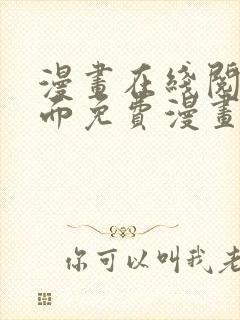 漫畫在綫閱
而免費漫畫
你可以叫我老